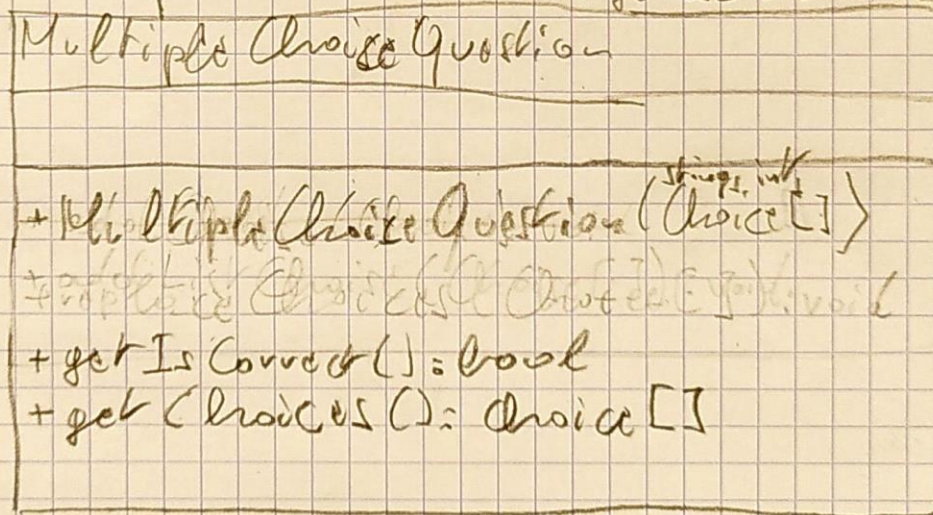 MultipleChoiceQuestion
+ MultipleChoiceQuestion(string, int, Choice[])
+ getIsCorrect(): bool
+ getChoices(): Choice[]